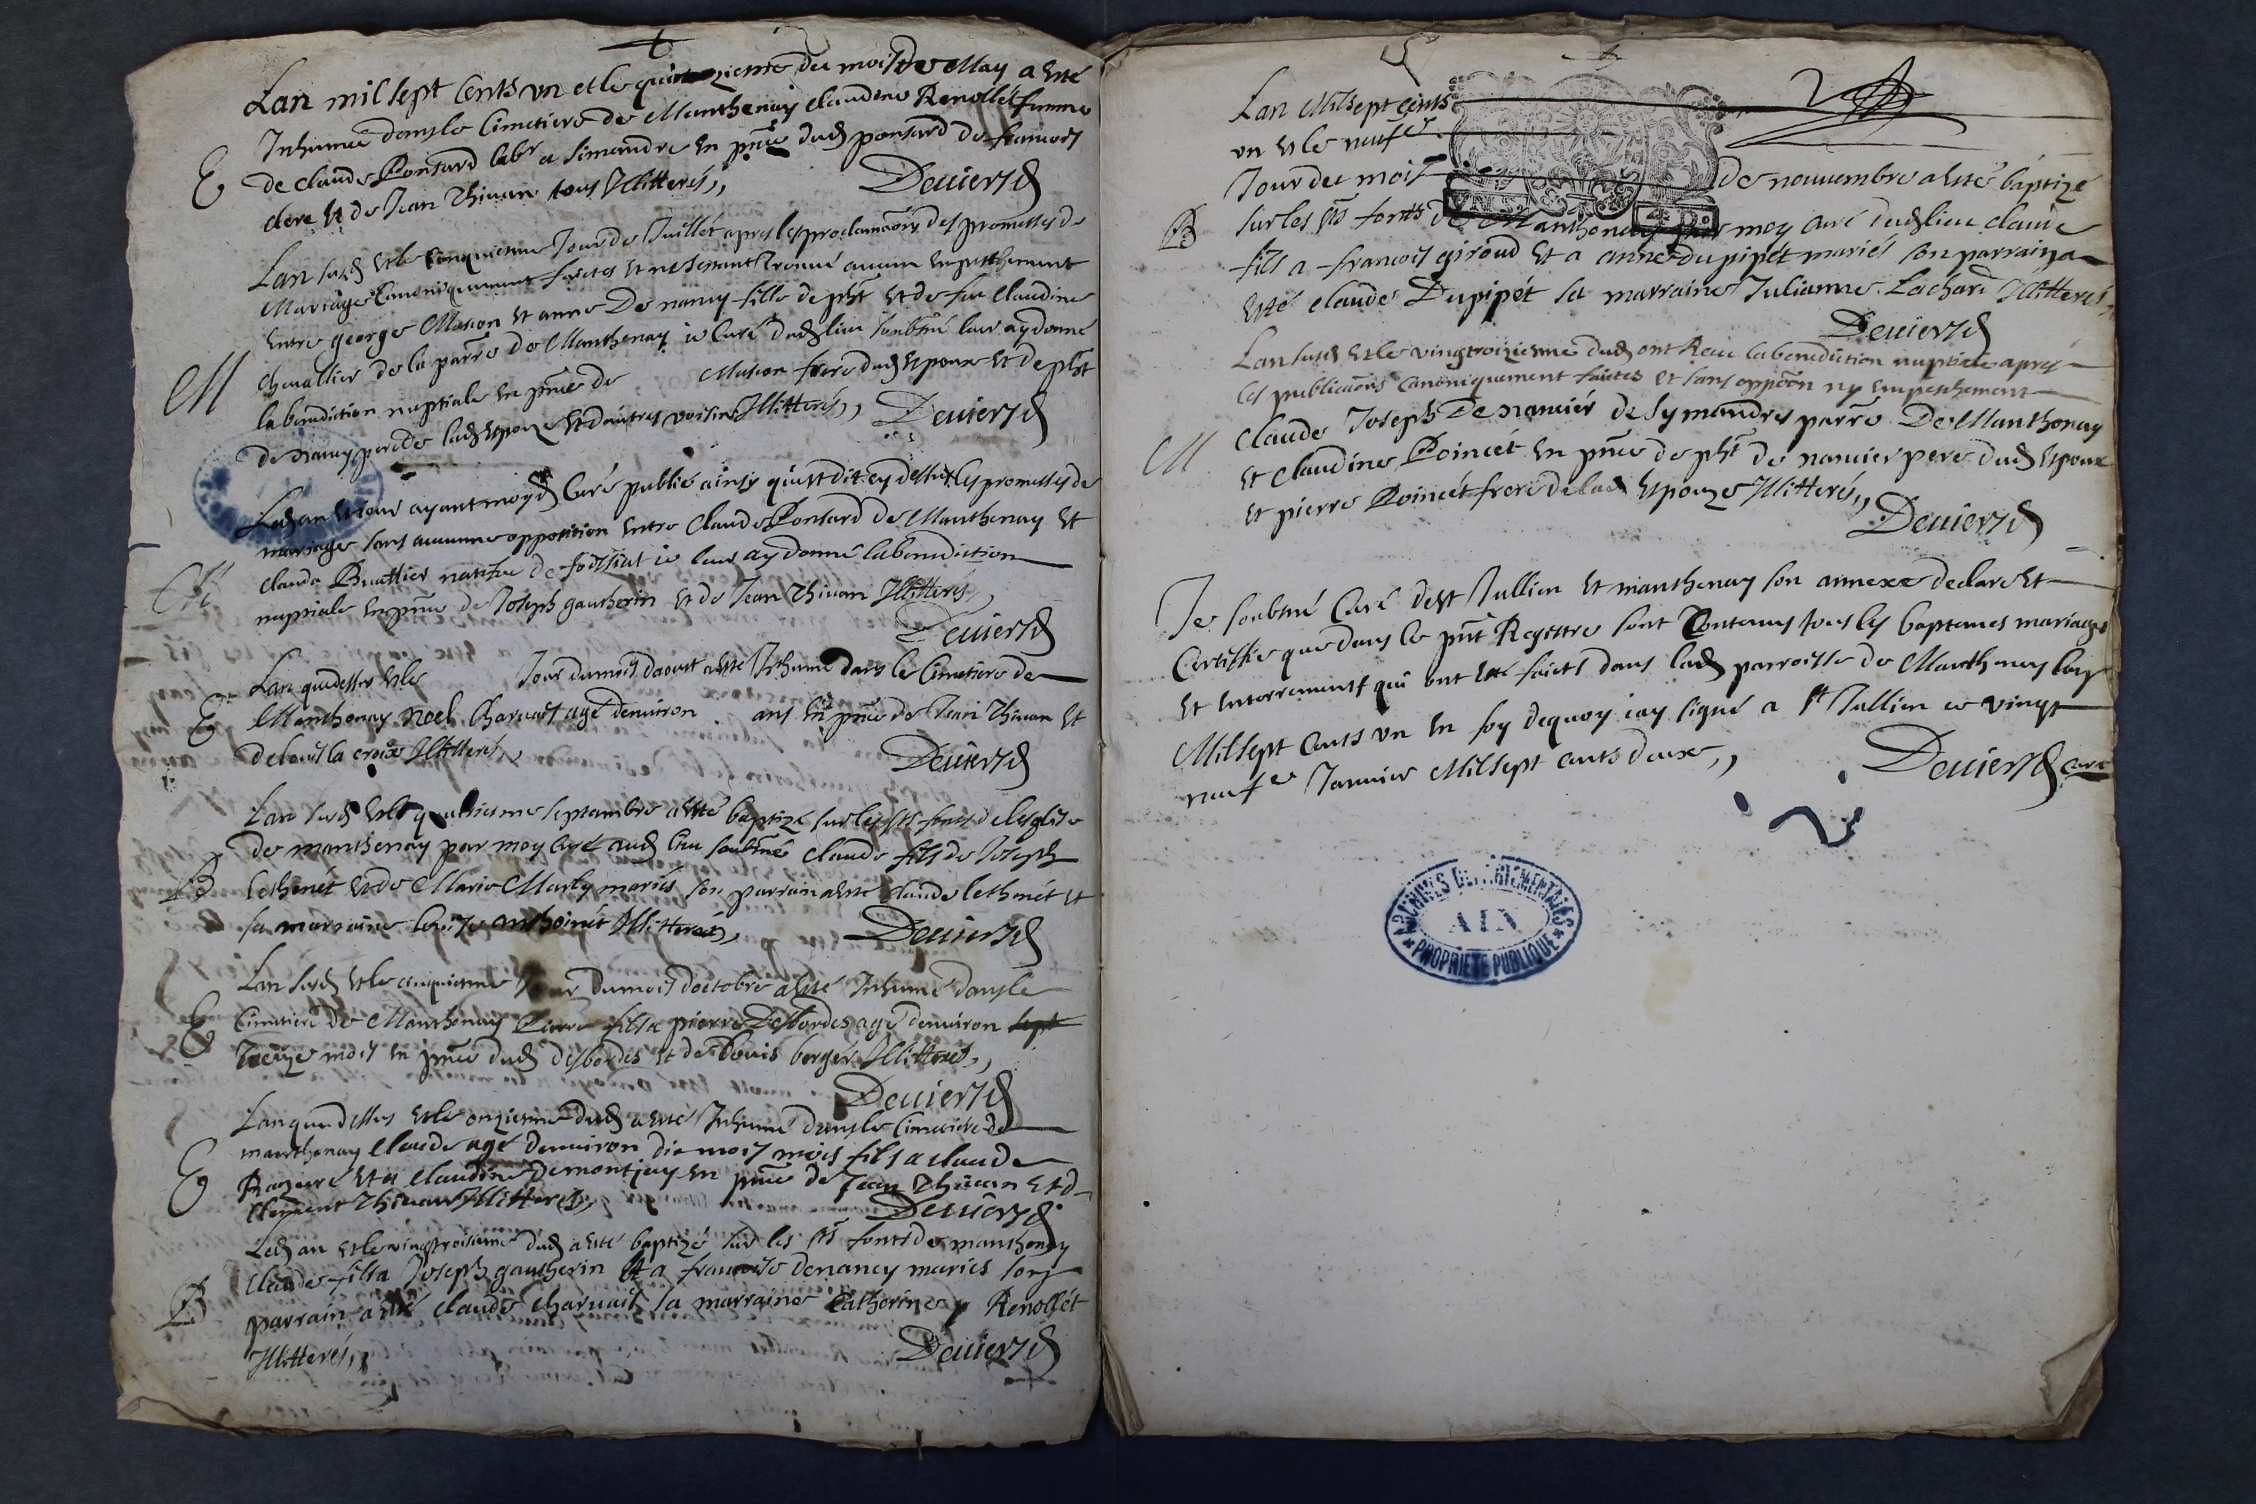 Lan mil sept cents un et le quatorzieme du mois de May a esté
E
Inhumée dans le Cimetiere de Manthenay claudine Renollet femme
de claude Ponsard labr a simandre en pñce dud ponsard de francois
clere et de Jean Thivan tous Illitterés,,
Deviers d
Lan susd et le cinquieme Jour de Juillet apres les proclamaons des promesses de
Mariages Canoniquement faictes et ne sestant trouvé aucun empeschement
M
entre george Mason et anne De nancy fille de pht et de feu claudine
chevallier de la parre de Manthenay je Curé dud lieu soubsné leur ay donné
la benediction nuptiale en pñce de Mason frere dud espoux et de pht
de nancy pere de lad espouze et dautres voisins Illitterés,,
Deviers d
Led an et jour ayant moy d Curé publié ainsy quest dit cy dessus les promesses de
mariage sans aucunne opposition entre Claude Ponsard de Manthenay et
M
clauda Buattier native de foissiat je leur ay donné la benediction
nuptiale en pñce de Joseph gautherin et de Jean Thivan Illitterés,
Deviers d
E
Lan que dessus et le Jour du mois daoust a esté Inhumé dans le Cimetiere de
Manthenay Noel Charvait agé denviron ans en pñce de Jean Thivan et
de louis la croix Illitterés,,
Deviers d
Lan susd et le quatriesme septambre a esté baptizé sur les sts fonts de lesglise
de manthenay par moy curé aud lieu soubsné claude fils de Joseph
B
lethenet et de Marie Marby mariés son parrain a esté claude lethenet et
sa marraine louise anthoinet Illitterés,
Deviers d
Lan susd et le cinquieme Jour du mois doctobre a esté Inhumé dans le
E
Cimetiere de Manthenay Pierre fils a pierre Desbordes agé denviron sept
treize mois en pñce dud desbordes et de Louis berger Illitterés,,
Deviers d
Lan que dessus et le onzieme dud a esté Inhumé dans le Cimetiere de
E
manthenay Claude agé denviron dix mois mois fils a claude
et a claudine Demontjay en pñce de Jean Thivan et d
Clement Thivan Illitterés,
Deviers d
Led an et le vingtroisieme dud a esté baptizé sur les sts fonts de manthenay
Claude fils a Joseph gautherin et a francoise denancy mariés son
B
parrain a esté claude charvait sa marraine Catherine Renollet
Illitterés,,
Deviers d
Lan Mil sept cents
un et le neufe
Jour du mois de novembre a esté baptizé
B
sur les sts fonts de Manthenay par moy curé dud lieu claude
fils a francois giroud et a anne dupipet mariés son parrain a
esté claude Dupipet sa marraine Julianne Lachard Illitterés,
Deviers d
Lan susd et le vingtroizieme dud ont Receu la benediction nuptiale apres
les publicaons canoniquement faictes et sans oppoon ny empeschement
M
Claude Joseph Denancier de symandres parre De Manthenay
et claudine Poincet en pñce de pht de nancier pere dud espoux
et pierre Poincet frere de lad espouze Illitterés,,
Deviers d
Je soubsné Curé de st Jullien et manthenay son annexe declare et
Certiffie que dans le pnt Registre sont Contenus tous les baptemes mariages
et enterrements qui ont esté faicts dans lad parroisse de Manthenay lan
Mil sept cents un en foy dequoy jay signé a st Jullien ce vingt
neufe Janvier Mil sept cents deux,,
Deviers d curé
ARCHIVES DEPARTEMENTALES
AIN
* PROPRIETE PUBLIQUE *